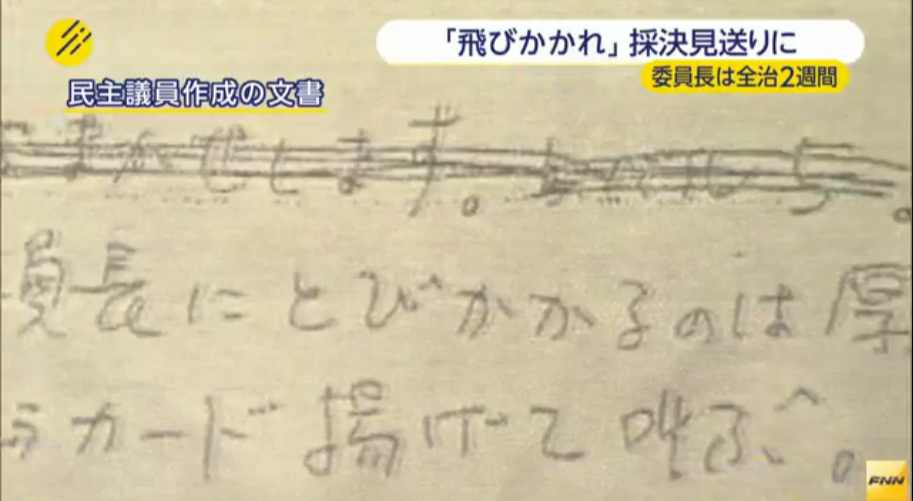 「飛びかかれ」採決見送りに
委員長は全治2週間
民主議員作成の文書
まかせします。
員長にとびかかるのは厚
カード揚げて叫ぶ。
FNN